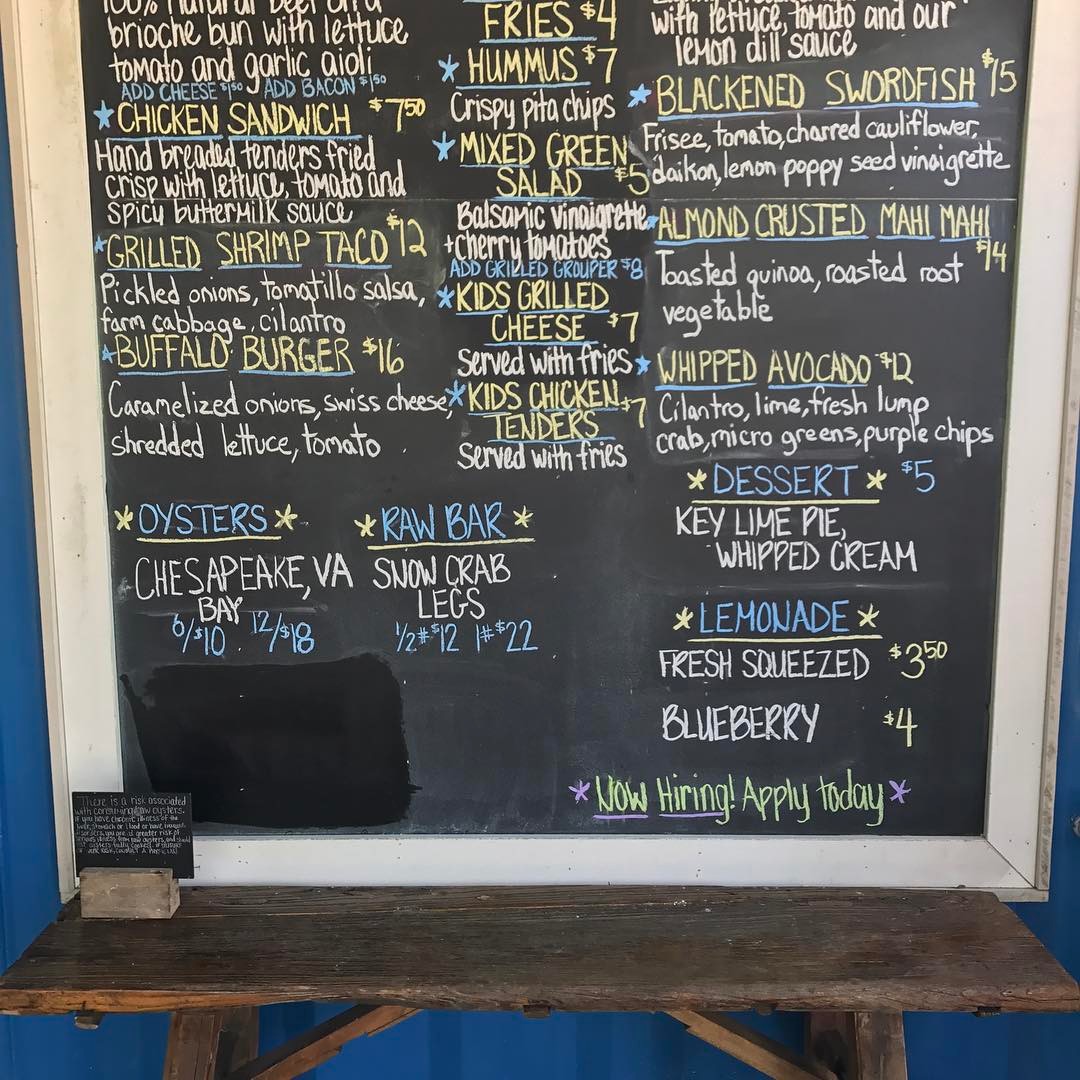 100% natural beef on a
brioche bun with lettuce
tomato and garlic aioli
ADD CHEESE $1.50 ADD BACON $1.50
CHICKEN SANDWICH $7.50
Hand breaded tenders fried
crisp with lettuce, tomato and
spicy buttermilk sauce
GRILLED SHRIMP TACO $12
Pickled onions, tomatillo salsa,
farm cabbage, cilantro
BUFFALO BURGER $16
Caramelized onions, swiss cheese,
shredded lettuce, tomato
FRIES $4
HUMMUS $7
Crispy pita chips
MIXED GREEN
SALAD $5
Balsamic vinaigrette
+cherry tomatoes
ADD GRILLED GROUPER $8
KIDS GRILLED
CHEESE $7
Served with fries
KIDS CHICKEN $7
TENDERS
Served with fries
with lettuce, tomato and our
lemon dill sauce
BLACKENED SWORDFISH $15
Frisee, tomato, charred cauliflower,
daikon, lemon poppy seed vinaigrette
ALMOND CRUSTED MAHI MAHI
$14
Toasted quinoa, roasted root
vegetable
WHIPPED AVOCADO $12
Cilantro, lime, fresh lump
crab, micro greens, purple chips
*OYSTERS*
CHESAPEAKE, VA
BAY
6/$10 12/$18
*RAW BAR*
SNOW CRAB
LEGS
1/2# $12 1# $22
*DESSERT* $5
KEY LIME PIE,
WHIPPED CREAM
*LEMONADE*
FRESH SQUEEZED $3.50
BLUEBERRY $4
*Now Hiring! Apply today*
There is a risk associated
with consuming raw oysters.
if you have chronic illness of the
liver, stomach or blood or have immune